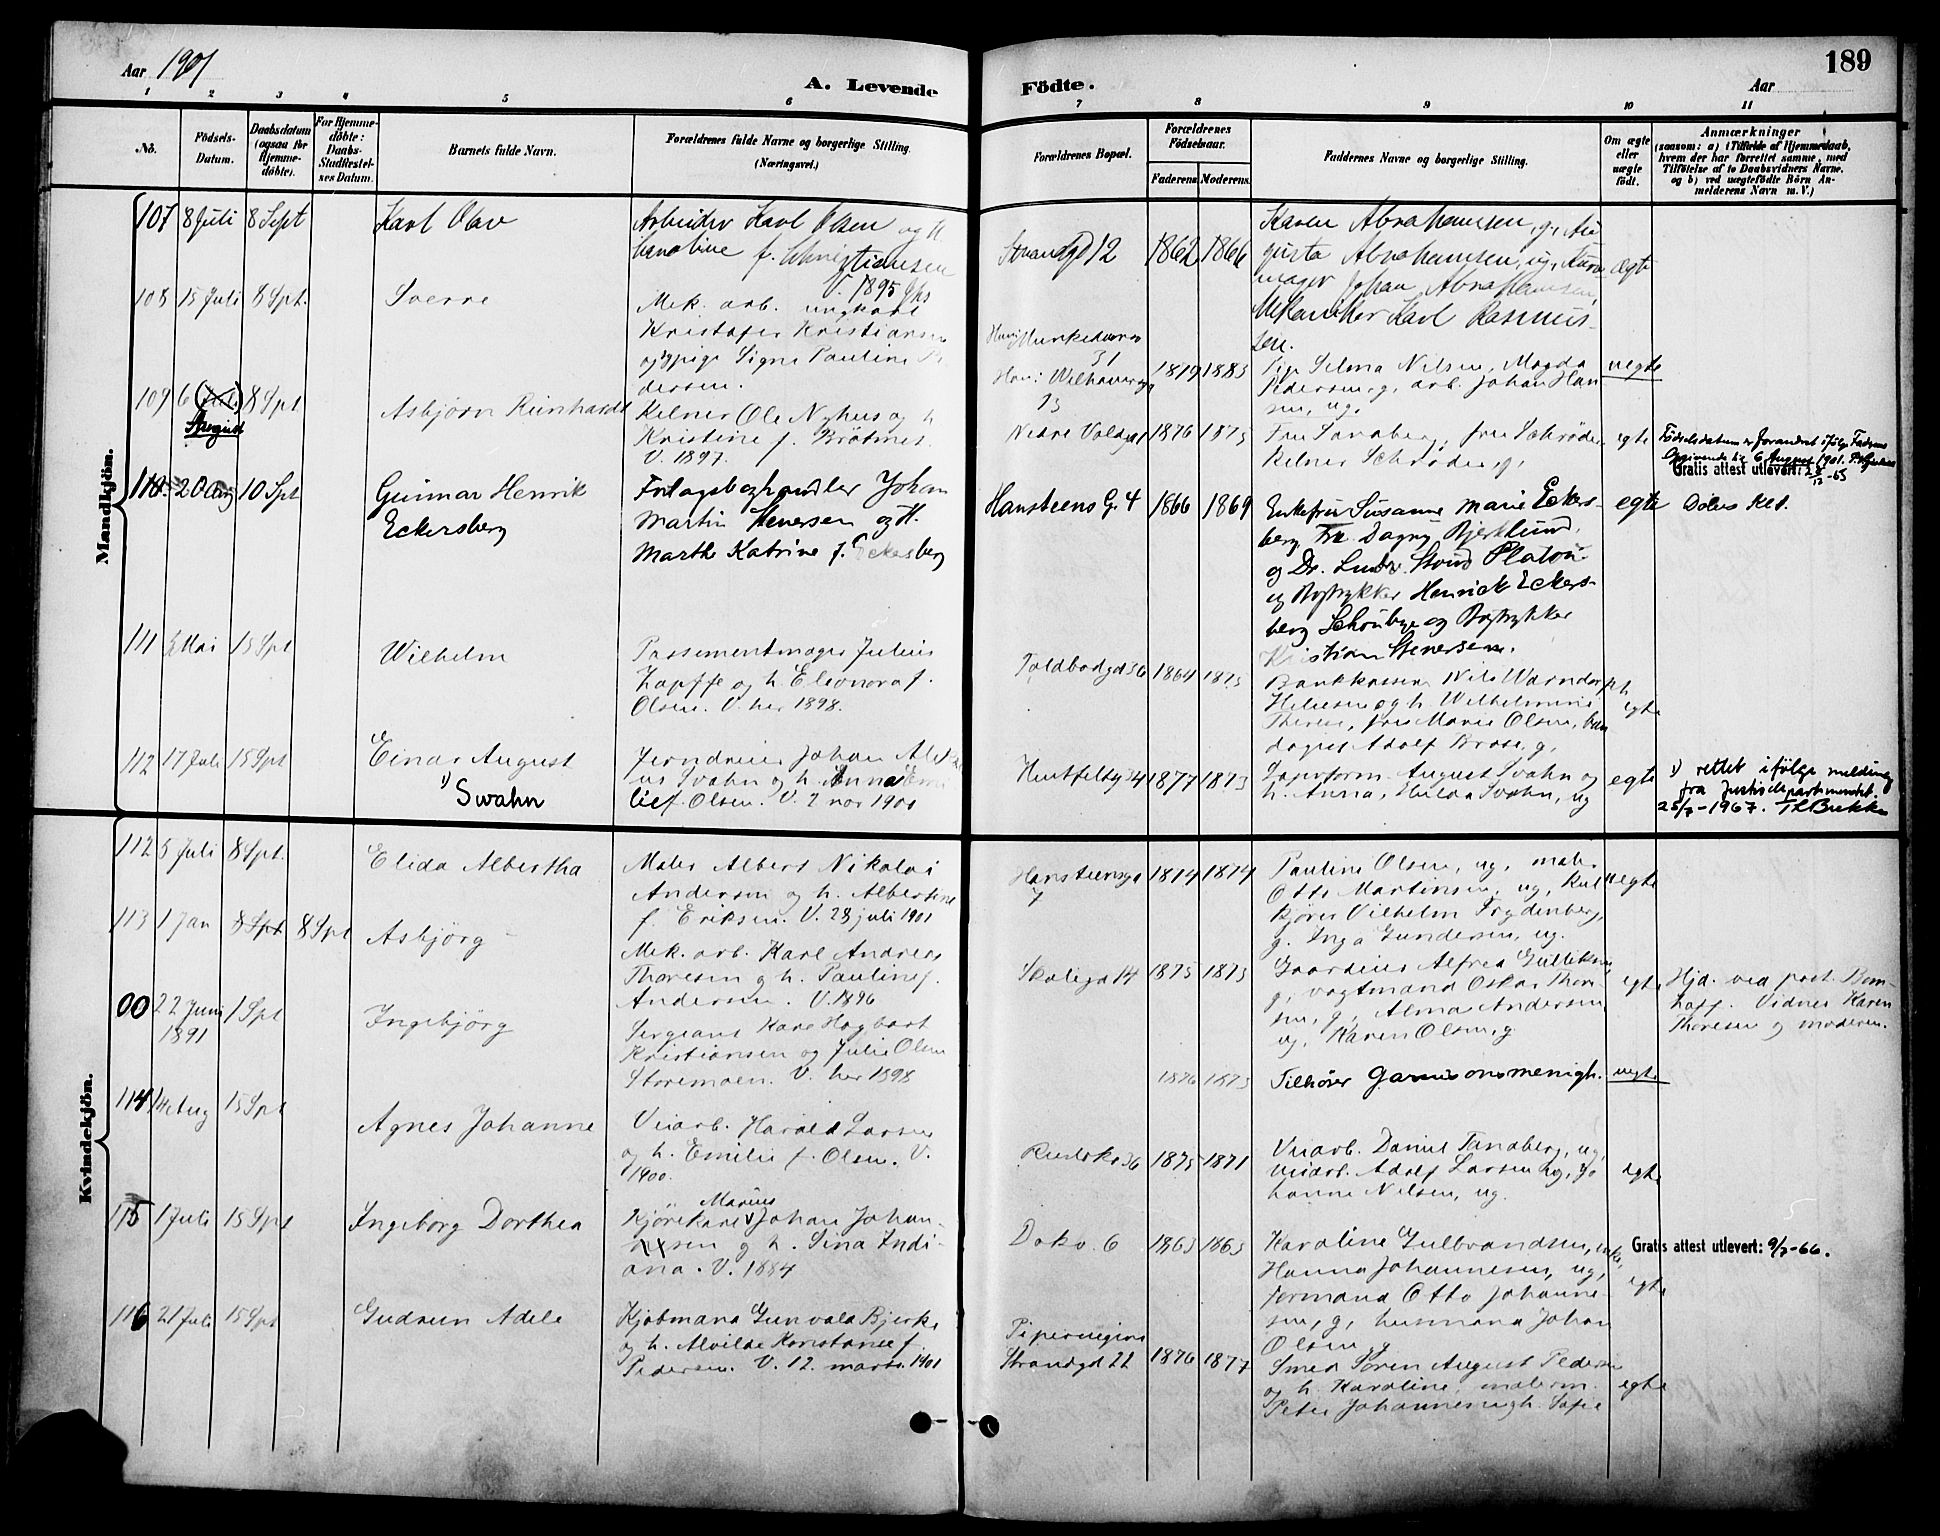 Aar 1901
A. Levende
Födte.
Aar
189
1 2 3 4 5 6 7 8 9 10 11
No.
Födsels-
Datum.
Daabsdatum
(ogsaa for
Hjemme-
döbte).
For Hjemme-
döbte:
Daabs-
Stadfæstel-
ses Datum.
Barnets fulde Navn.
Forældrenes fulde Navne og borgerlige Stilling
(Næringsvei.)
Forældrenes Bopæl.
Forældrenes
Födselsaar.
Faderens Moderens
Faddernes Navne og borgerlige Stilling.
Om ægte
eller
uægte
født.
Anmærkninger
(saasom: a) i Tilfælde af Hjemmedaab,
hvem der har forrettet samme, med
Tilföielse af to Daabsvidners Navne,
og b) ved uægtefödte Börn An-
melderens Navn m. V.)
Mandkjön.
107 8 Juli 8 Sept
Karl Olav
Arbeider Karl Olsen og H.
f. Christiansen
V. 1895
Strandgd 12
1862 1866
Karen Abrahamsen, g, Au
gusta Abrahamsen, ug,
mager Johan Abrahamsen,
Mekaniker Karl Rasmus-
sen.
ægte
108 15 Juli 8 Spt.
Sverre
Mek. arb. ungkarl
Kristofer Kristiansen
og pige Signe Pauline Pe
dersen.
Munkedamsv
31
13
1879 1883
Pige Selma Nilsen, Magda
Pedersen, g, arb. Johan Han
sen, ug.
uegte
109 6 (Juli) 8 Spt
August
Asbjörn Reinhardt
Kelner Ole Nyhus og h
Kristine f. Bråtmes
V. 1897.
Nedre Voldgd 1
1876 1875
Fru Sandberg, fru Schröder,
Kelner Schröder, g,
egte
Födselsdatum er forandret ifölge Faderens
Opgivende til 6 August 1901.
Gratis attest utlevert:
110. 20 Aug 10 Spt
Gunnar Henrik
Eckersberg
Forlagsboghandler Johan
Martin Stenersen og H.
Marthe Katrine f. Eckersberg
Hansteens G. 4
1866 1869
Enkefru Susanne Marie Eckers-
berg, Frk. Dagny Bjerklund
og Dr. Ludv. Stoud Platou
og Bogtrykker Henrich Eckers-
berg Schönbye og Bogtrykker
Kristian Stenersen.
egte
Döbes Ked.
111 5 Mai 15 Spt
Wilhelm
Posementmager Julius
Zapffe og h. Eleonora f.
Olsen. V. her 1898.
Toldbodgd 36
1864 1875
Bankkasserer Nils Warndorph
Helliesen og h. Wilhelmine
Therese, fru Marie Olsen, han
dagent Adolf Brose, g,
egte
112 17 Juli 15 Spt
Einar August
1) Swahn
Jerndreier Johan
Svahn og h. Anna Emi
lie f. Olsen. V. 2 nov 1900
Huitfeldtg 34
1877 1873
Lagerform. August Svahn og
h. Anna, Hilda Svahn, ug
egte
1) rettet ifölge melding
fra Justisdepartementet
25/7-1967. Th Brekke
Kvindekjön.
112 5 Juli 8 Spt.
Elida Albertha
Maler Albert Nikolai
Andersen og h. Albertine
f. Eriksen. V. 28 juli 1901
Hansteensgd
7
1874 1874
Pauline Olsen, ug, maler
Otto Martinsen, ug, kul
kjörer Vilhelm Frydenberg,
g. Inga Gundersen, ug.
egte
113 1 Jan 8 Spt 8 Spt
Asbjörg
Mek. arb. Karl Andreas
Thoresen og h. Pauline f.
Andersen. V. 1896
Skolegd 14
1875 1873
Gaardeier Alfred Gulliksen,
g, vogtmand Oskar Thor
sen, g, Alma Andersen
ug, Karen Olsen, g
egte
Hjd. ved past. Bom-
hoff. Vidner Karen
Thoresen og moderen.
00 22 Juni 1 Spt
1891
Ingebjörg
Sergeant Kare Hagbart
Kristiansen og Julie Olsen
Storemoen. V. her 1898
1876 1873
Tilhörer Garnisonsmenigh.
uegte
114 14 Aug 15 Spt
Agnes Johanne
Veiarb. Harald Larsen
og h. Emilie f. Olsen. V.
1900.
Ruselökv 36
1875 1871
Veiarb. Daniel Tandberg, ug,
veiarb. Adolf Larsen ug, Jo
hanne Nilsen, ug.
egte
115 1 Juli 15 Spt
Ingeborg Dorthea
Marius
Kjörekarl Johan Johan-
sen g h. Sina Indi-
ana. V. 1884
Dokv. 6
1863 1863
Karoline Gulbrandsen, enke,
Hanna Johannesen, ug,
formand Otto Johanne
sen, g, husmand Johan
Olsen, g
egte
Gratis attest utlevert: 9/3-66.
116 21 Juli 15 Spt
Gudrun Adele
Kjöbmand Gunvald Bjerke
og h. Alvilde Konstanse f.
Pedersen. V. 12. mars 1901
Pipervigens
Strandgd 22
1876 1877
Smed Sören August Pedersen
og h. Karoline, malerm.
Peter Johannesen og h. Sofie
egte